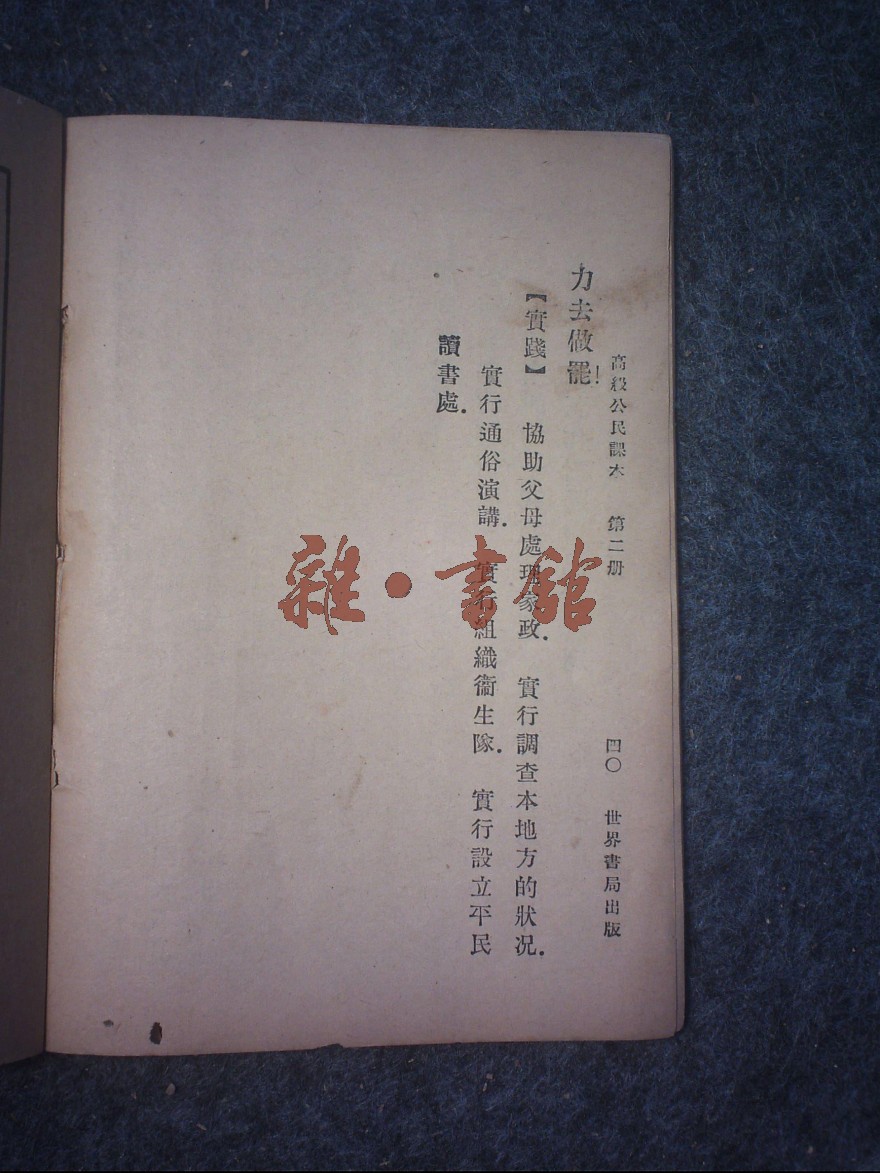 高級公民課本 第二册 四〇 世界書局出版
力去做罷!
【實踐】 協助父母處理家政. 實行調查本地方的狀況.
實行通俗演講. 實行組織衞生隊. 實行設立平民
讀書處.
雜·書館